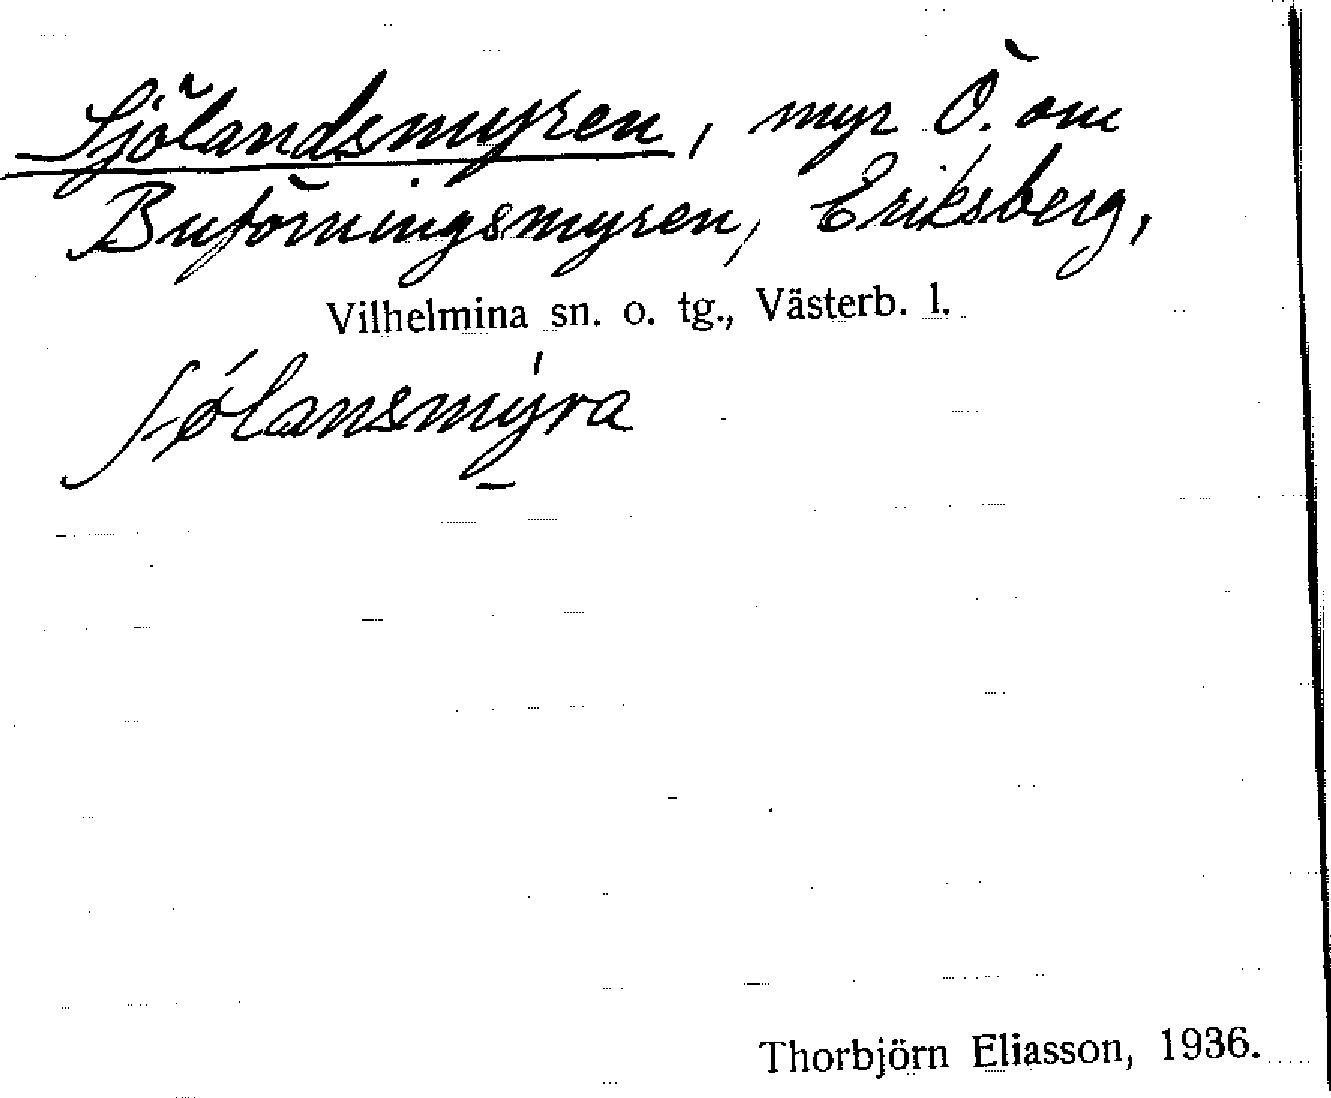 Sjölandsmyren, myr Ö. om
Buförningsmyren, Eriksberg,
Vilhelmina sn. o. tg., Västerb. l.
ʃø̀lansmýra
Thorbjörn Eliasson, 1936.